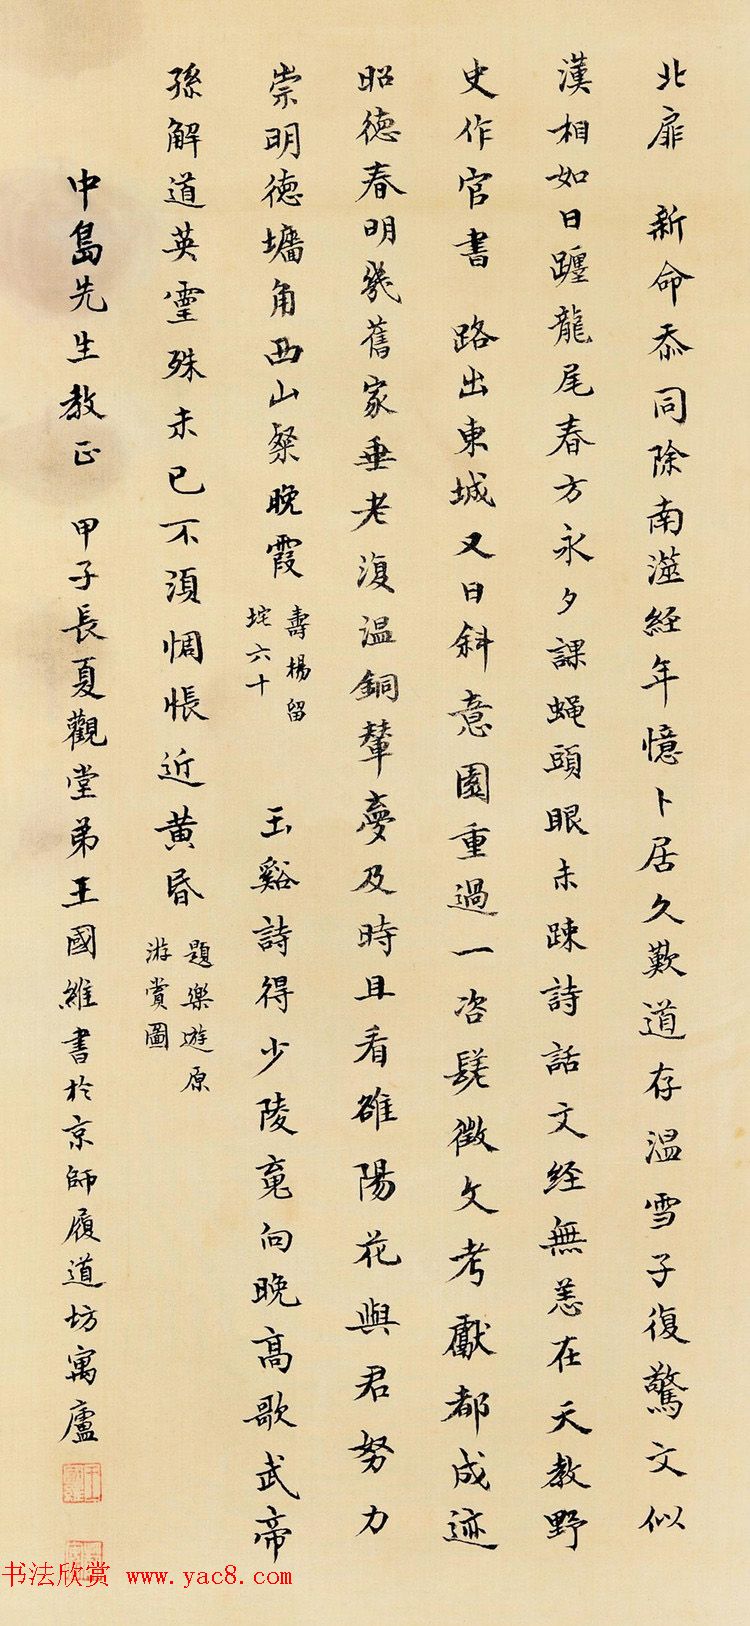 北扉　新命忝同除南澨經年憶卜居久歎道存溫雪子復驚文似
漢相如日躔龍尾春方永夕課蝇頭眼未踈詩話文經無恙在天教野
史作官書　路出東城又日斜意園重過一咨嗟徵文考獻都成迹
昭德春明幾舊家垂老復溫銅輦夢及時且看雒陽花與君努力
崇明德墻角西山粲晚霞
壽楊留
垞六十
玉谿詩得少陵䰟向晚高歌武帝
孫解道英靈殊未已不須惆悵近黃昏
題樂遊原
游賞圖
中島先生教正　甲子長夏觀堂弟王國維書於京師履道坊寓廬
书法欣赏 www.yac8.com